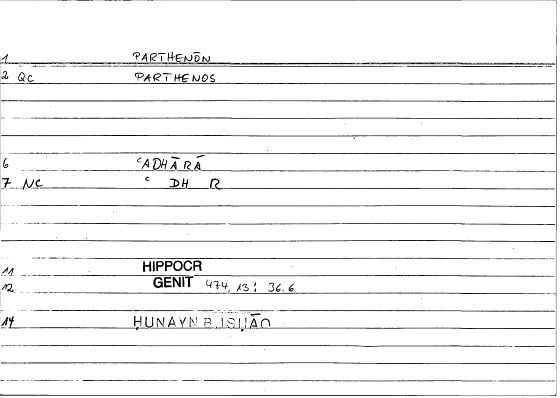 1 PARTHENŌN
2 QC PARTHENOS
6 ᶜADHĀRĀ
7 NC ᶜ DH R
11 HIPPOCR
12 GENIT 474, 13 : 36.6
14 ḤUNAYN B. ISḤĀQ